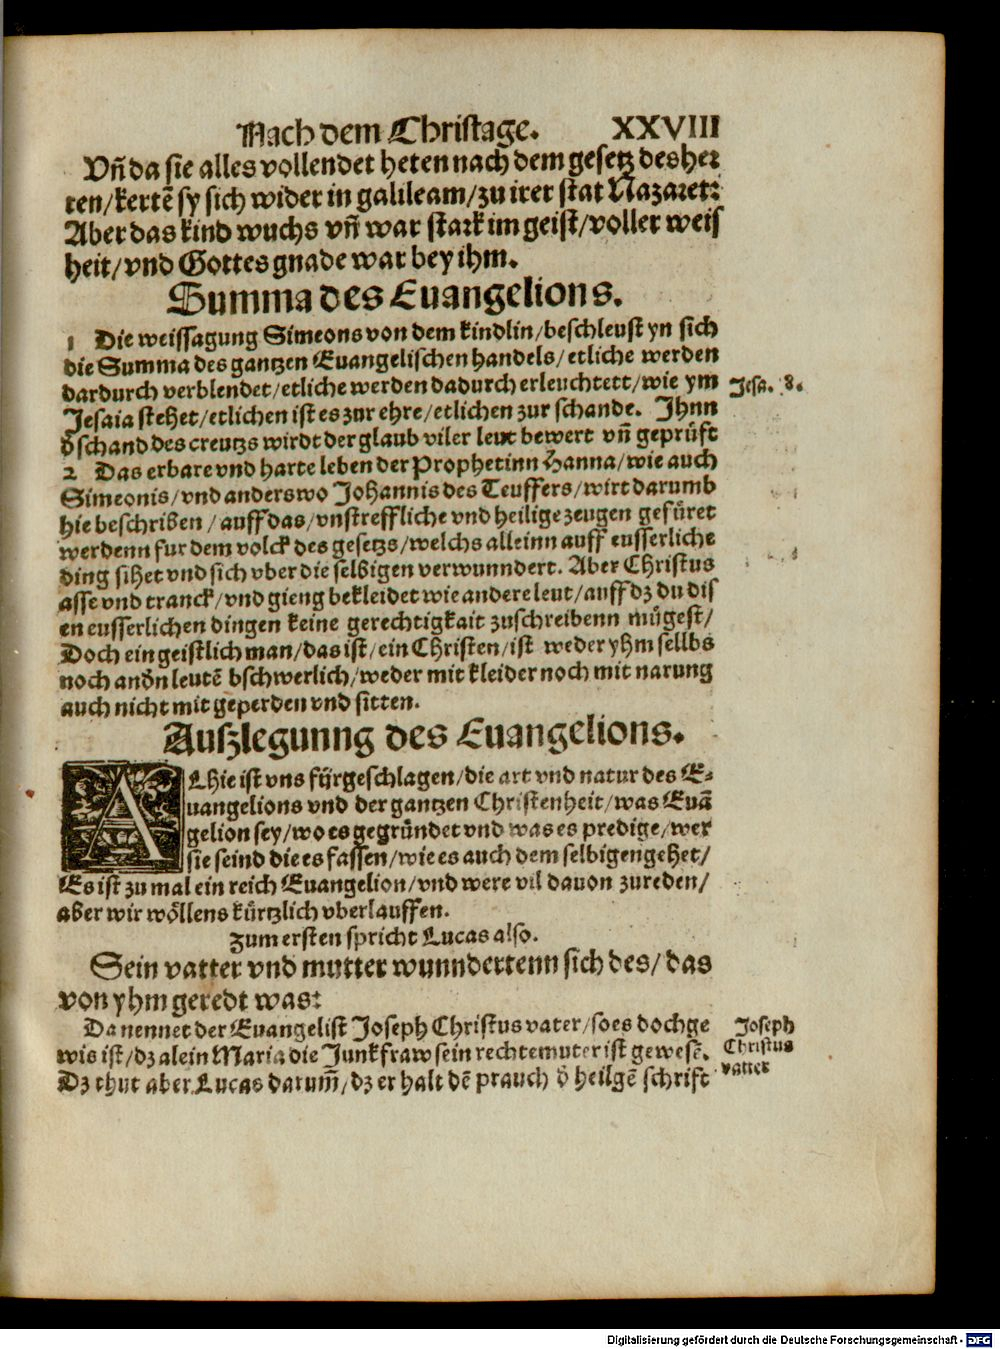 Nach dem Christage. XXVIII
Vñ da sie alles vollendet heten nach dem gesetz des her
ren/kertẽ sy sich wider in galileam/zu irer stat Nazaret:
Aber das kind wuchs vñ war stark im geist/voller weis
heit/vnd Gottes gnade war bey ihm.
Summa des Euangelions.
1 Die weissagung Simeons von dem kindlin/beschleust yn sich
die Summa des gantzen Euangelischen handels/etliche werden
dardurch verblendet/etliche werden dadurch erleuchtett/wie ym
Jesaia stehet/etlichen ist es zur ehre/etlichen zur schande. Jhnn
d̕ schand des creutzs wirdt der glaub viler leut bewert vñ geprüft
Jesa. 8.
2 Das erbare vnd harte leben der Prophetinn Hanna/wie auch
Simeonis/vnd anderswo Johannis des Teuffers/wirt darumb
hie beschriben/auff das/vnstreffliche vnd heilige zeugen gefüret
werdenn fur dem volck des gesetzs/welchs alleinn auff eusserliche
ding sihet vnd sich vber die selbigen verwunndert. Aber Christus
asse vnd tranck/vnd gieng bekleidet wie andere leut/auff dz du dis
en eusserlichen dingen keine gerechtigkait zuschreibenn mügest/
Doch ein geistlich man/das ist/ein Christen/ist weder yhm sellbs
noch and̕n leutẽ bschwerlich/weder mit kleider noch mit narung
auch nicht mit geperden vnd sitten.
Auszlegunng des Euangelions.
ALhie ist vns fürgeschlagen/die art vnd natur des E-
uangelions vnd der gantzen Christenheit/was Euã
gelion sey/wo es gegründet vnd was es predige/wer
sie seind die es fassen/wie es auch dem selbigen gehet/
Es ist zu mal ein reich Euangelion/vnd were vil dauon zureden/
aber wir wöllens kürtzlich vberlauffen.
Zum ersten spricht Lucas also.
Sein vatter vnd mutter wunndertenn sich des/das
von yhm geredt was:
Da nennet der Euangelist Joseph Christus vater/so es doch ge
wis ist/dz alein Maria die Junkfraw sein rechte muter ist gewesẽ.
Dz thut aber Lucas darum̃/dz er halt dẽ prauch d̕ heilgẽ schrift
Joseph
Christus
vatter
Digitalisierung gefördert durch die Deutsche Forschungsgemeinschaft - DFG